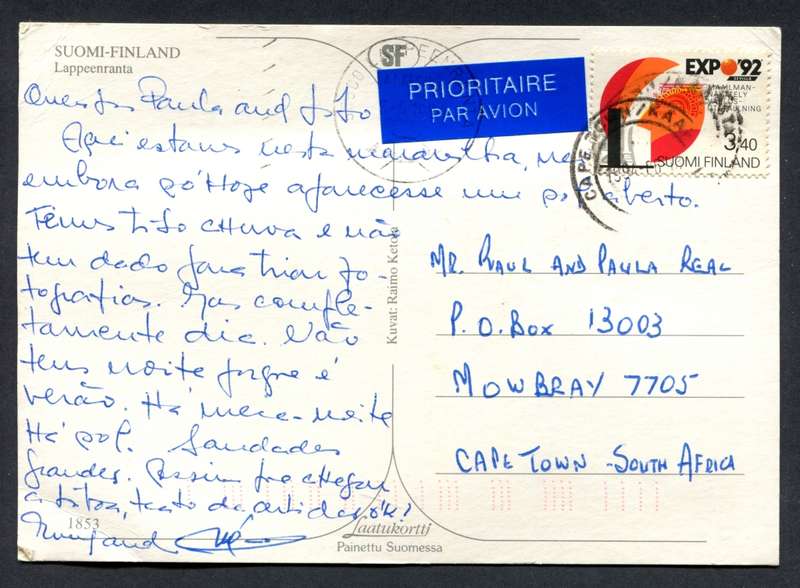 SUOMI-FINLAND
Lappeenranta
SF
PRIORITAIRE
PAR AVION
EXPO'92
SEVILLA
MAAILMAN-
NÄYTTELY
3,40
SUOMI FINLAND
CAPE
Paula and
Aqui estamos nesta maravilha,
embora só Hoje aparecesse um aberto.
chuva e não
tem dado para tirar fo-
tografias. Mas comple-
tamente dia. Não
tem noite porque é
verão. Há meia-noite
Há sol. Saudades
grandes. Assim que chegar
a Lisboa, trato da
Kuvat: Raimo Ketola
MR. RAUL AND PAULA REAL
P.O. BOX 13003
MOWBRAY 7705
CAPE TOWN - SOUTH AFRICA
1853
Laatukortti
Painettu Suomessa